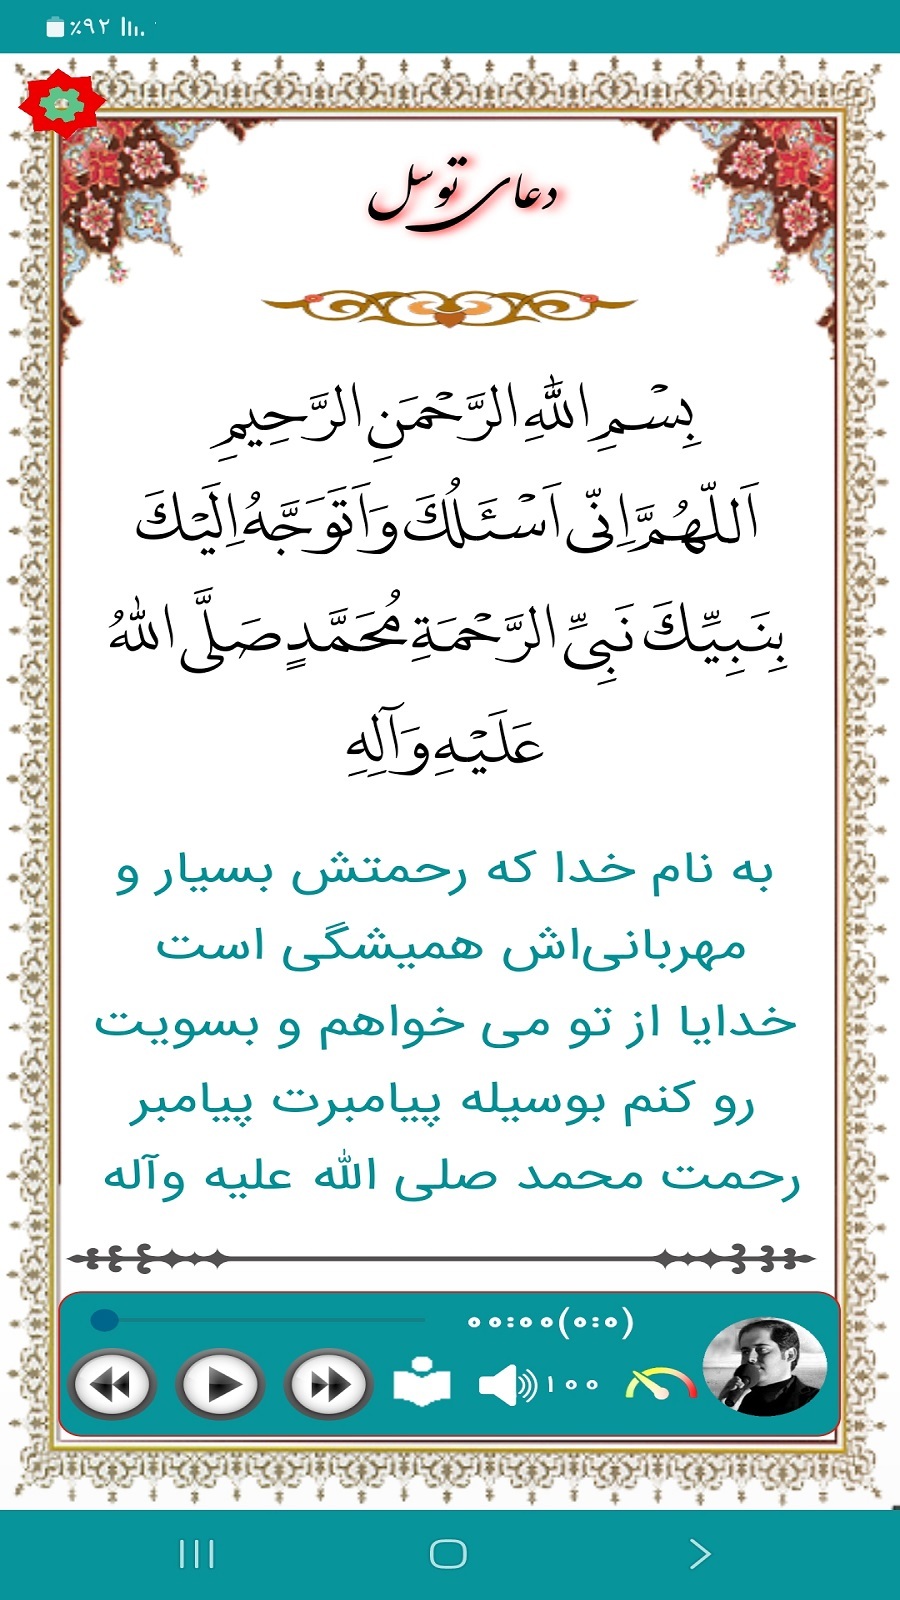 ٪۹۲
دعای توسل
بِسْمِ اللّٰهِ الرَّحْمَنِ الرَّحِیمِ
اَللّهُمَّ اِنّی اَسْئَلُكَ وَ اَتَوَجَّهُ اِلَیْكَ
بِنَبِیِّكَ نَبِیِّ الرَّحْمَةِ مُحَمَّدٍ صَلَّی اللّٰهُ
عَلَیْهِ وَ آلِهِ
به نام خدا که رحمتش بسیار و
مهربانی‌اش همیشگی است
خدایا از تو می خواهم و بسویت
رو کنم بوسیله پیامبرت پیامبر
رحمت محمد صلی الله علیه وآله
۰۰:۰۰(۰:۰)
۱۰۰